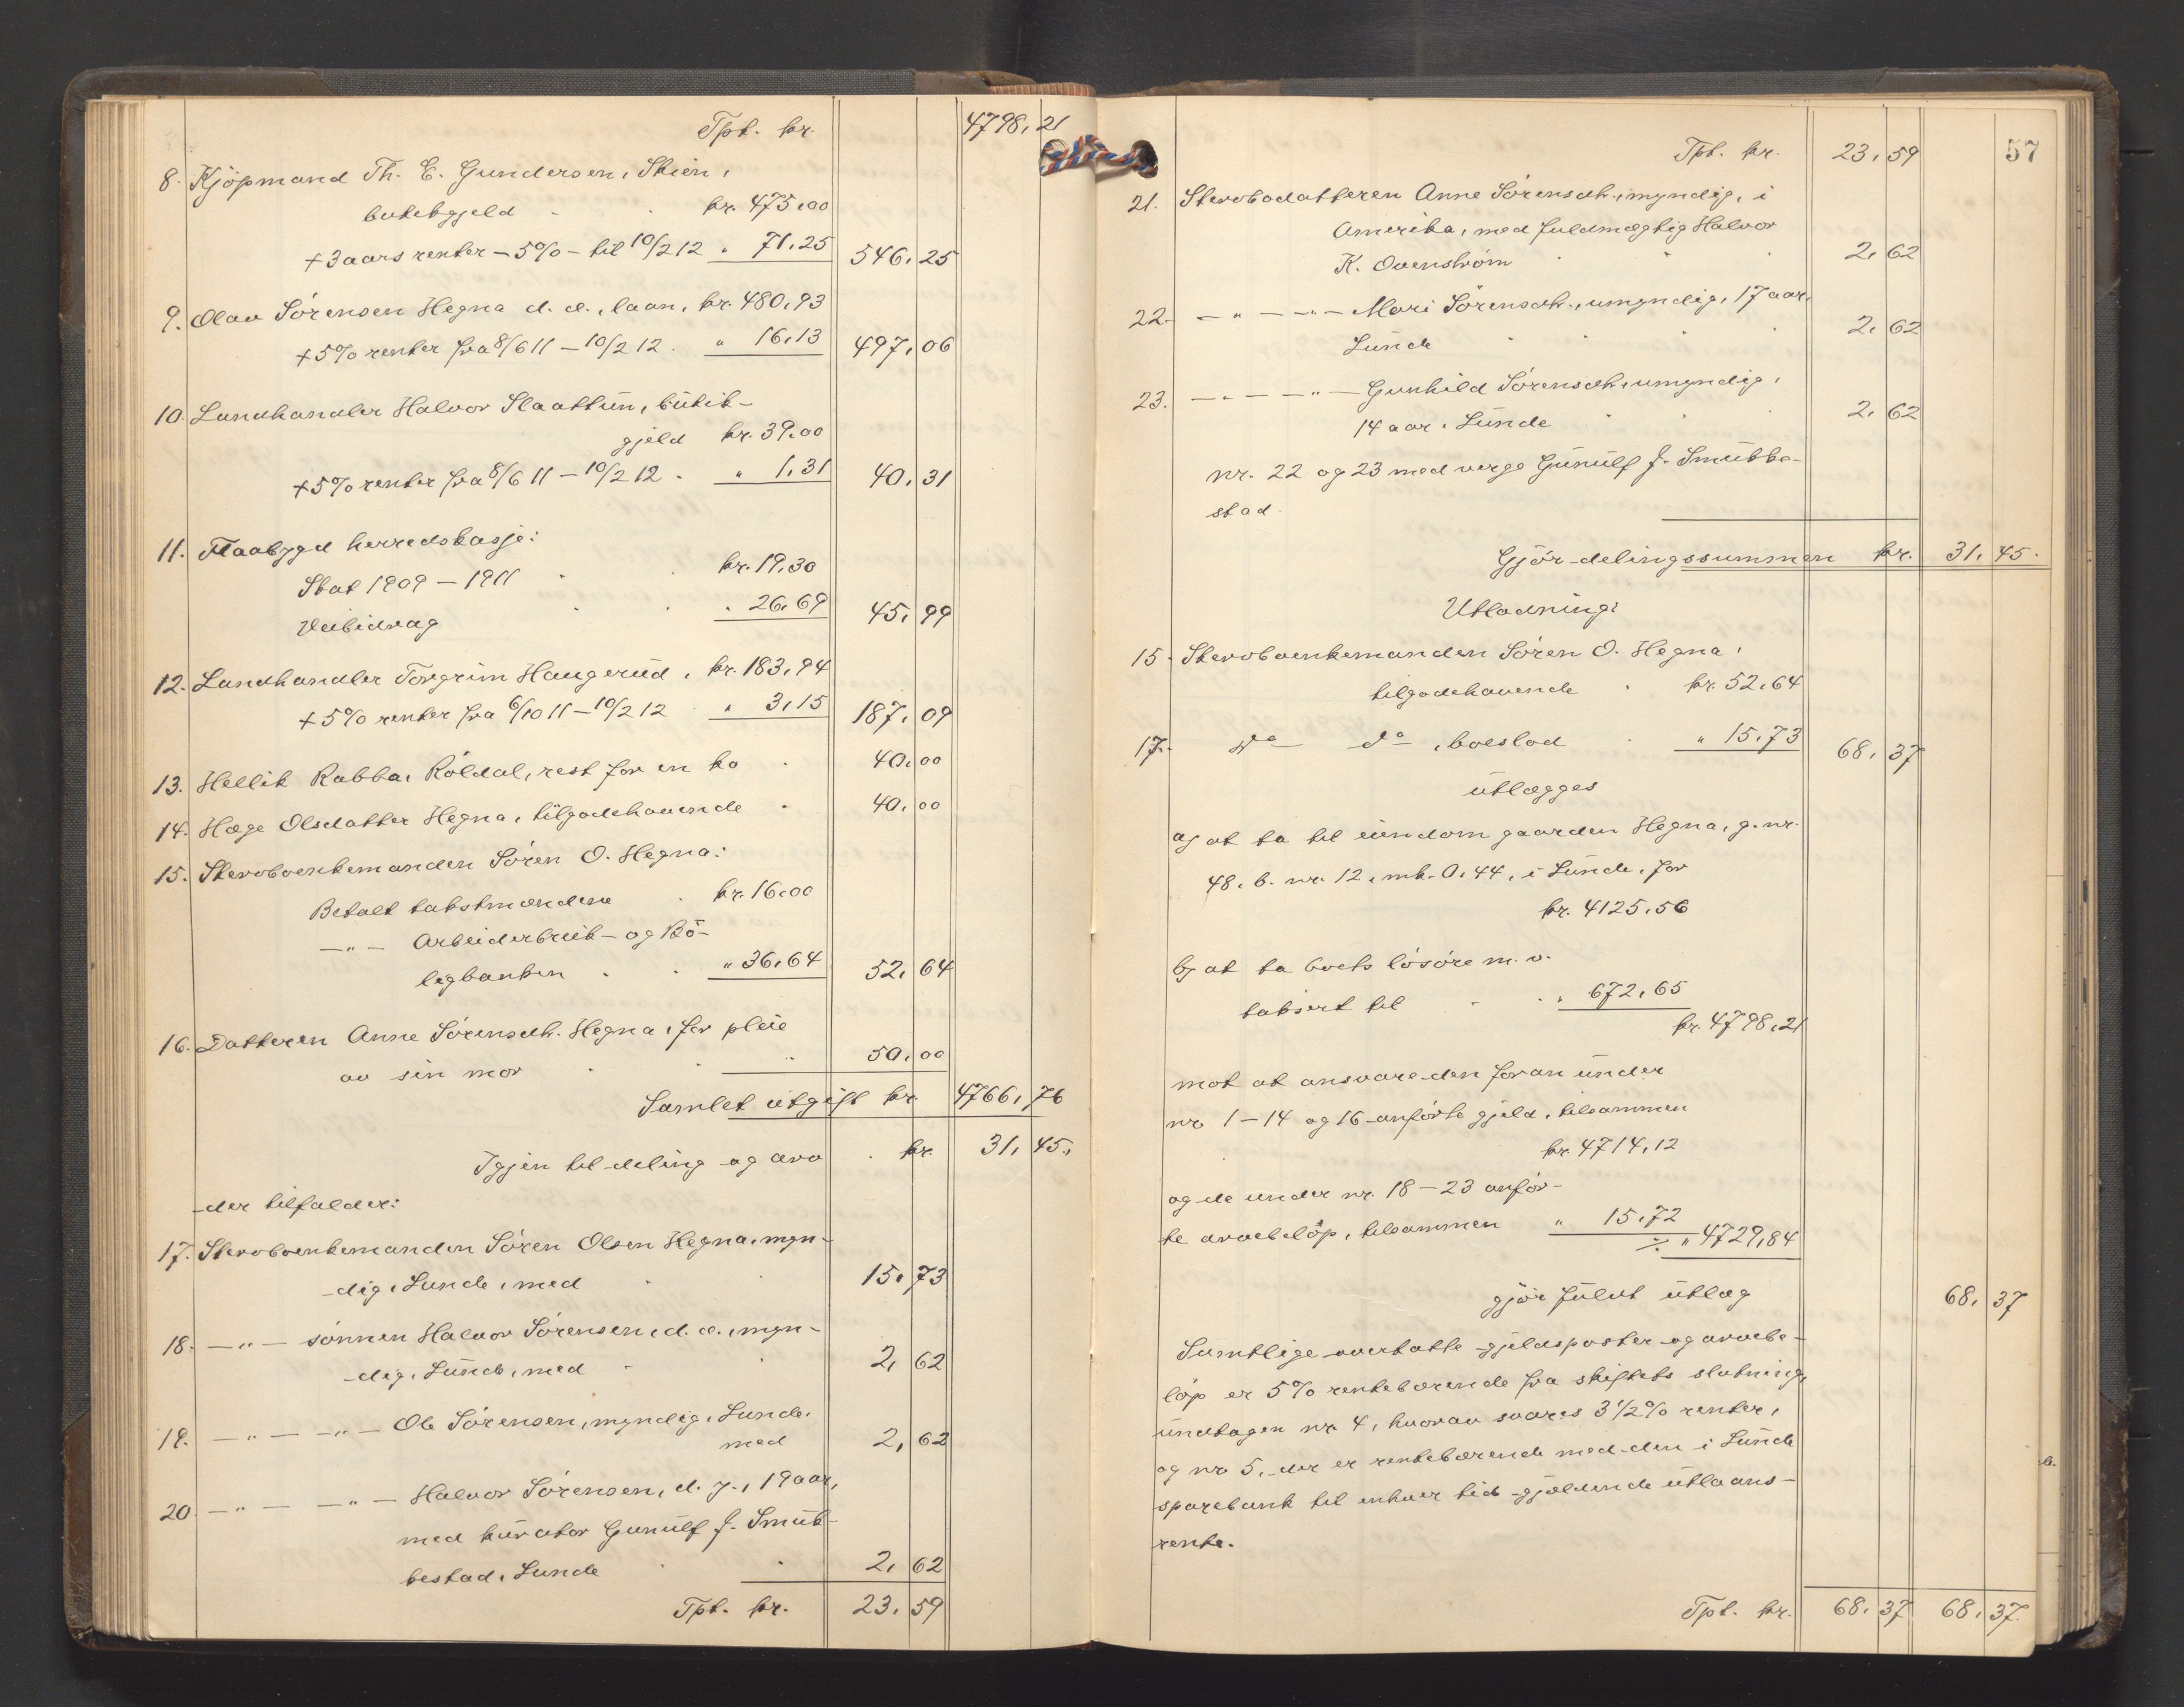 Tpt. kr. 4798,21
8. Kjöpmand Th. E. Gundersen, Skien,
butikgjeld kr. 475,00
+ 3 aars renter - 5% - til 10/2 12 " 71,25 546,25
9. Olav Sörensen Hegna d. æ., laan, kr. 480,93
+ 5% renter fra 8/6 11 - 10/2 12 " 16,13 497,06
10. Landhandler Halvor Slaattun, butik-
gjeld kr. 39,00
+ 5% renter fra 8/6 11 - 10/2 12 " 1,31 40,31
11. Flaabygd herredskasse:
Skat 1909 - 1911 kr. 19,30
Veibidrag " 26,69 45,99
12. Landhandler Torgrim Haugerud, kr. 183,94
+ 5% renter fra 6/10 11 - 10/2 12 " 3,15 187,09
13. Hellik Rabba, Röldal, rest for en ko 40,00
14. Hæge Olsdatter Hegna, tilgodehavende 40,00
15. Stervboenkemanden Sören O. Hegna:
Betalt takstmændene kr. 16,00
-"- Arbeiderbruk- og Bo-
ligbanken " 36,64 52,64
16. Datteren Anne Sörensdtr. Hegna, for pleie
av sin mor 50,00
Samlet utgift kr. 4766,76
Igjen til deling og arv kr. 31,45,
der tilfalder:
17. Stervboenkemanden Sören Olsen Hegna, myn-
dig, Lunde, med 15,73
18. -"- sönnen Halvor Sörensen, d. æ., myn-
dig, Lunde, med 2,62
19. -"- -"- Ole Sörensen, myndig, Lunde,
med 2,62
20. -"- -"- Halvor Sörensen, d. y., 19 aar,
med kurator Gunulf J. Smuk-
kestad, Lunde 2,62
Tpt. kr. 23,59
57
Tpt. kr. 23,59
21. Stervbodatteren Anne Sörensdtr., myndig, i
Amerika, med fuldmægtig Halvor
K. Ovenström 2,62
22. -"- -"- Mari Sörensdtr., umyndig, 17 aar,
Lunde 2,62
23. -"- -"- Gunhild Sörensdtr., umyndig,
14 aar, Lunde 2,62
nr. 22 og 23 med verge Gunulf J. Smukke-
stad.
Gjör delingssummen kr. 31,45.
Utlodning:
15. Stervboenkemanden Sören O. Hegna,
tilgodehavende kr. 52,64
17. do do, boeslod " 15,73 68,37
utlægges
a) at ta til eiendom gaarden Hegna, g. nr.
48, b. nr. 12, mk. 0,44, i Lunde, for
kr. 4125,56
b) at ta boets lösöre m. v.
taksert til " 672,65
kr. 4798,21
mot at ansvare den foran under
nr. 1 - 14 og 16 anförte gjeld, tilsammen
kr. 4714,12
og de under nr. 18 - 23 anför-
te arvebelöp, tilsammen " 15,72
÷ " 4729,84
gjör fuldt utlæg 68,37
Samtlige overtatte gjeldsposter og arvebe-
löp er 5% rentebærende fra skiftets slutning,
undtagen nr. 4, hvorav svares 3 1/2% renter,
og nr. 5, der er rentebærende med den i Lunde
sparebank til enhver tid gjældende utlaans-
rente.
Tpt. kr. 68,37 68,37.